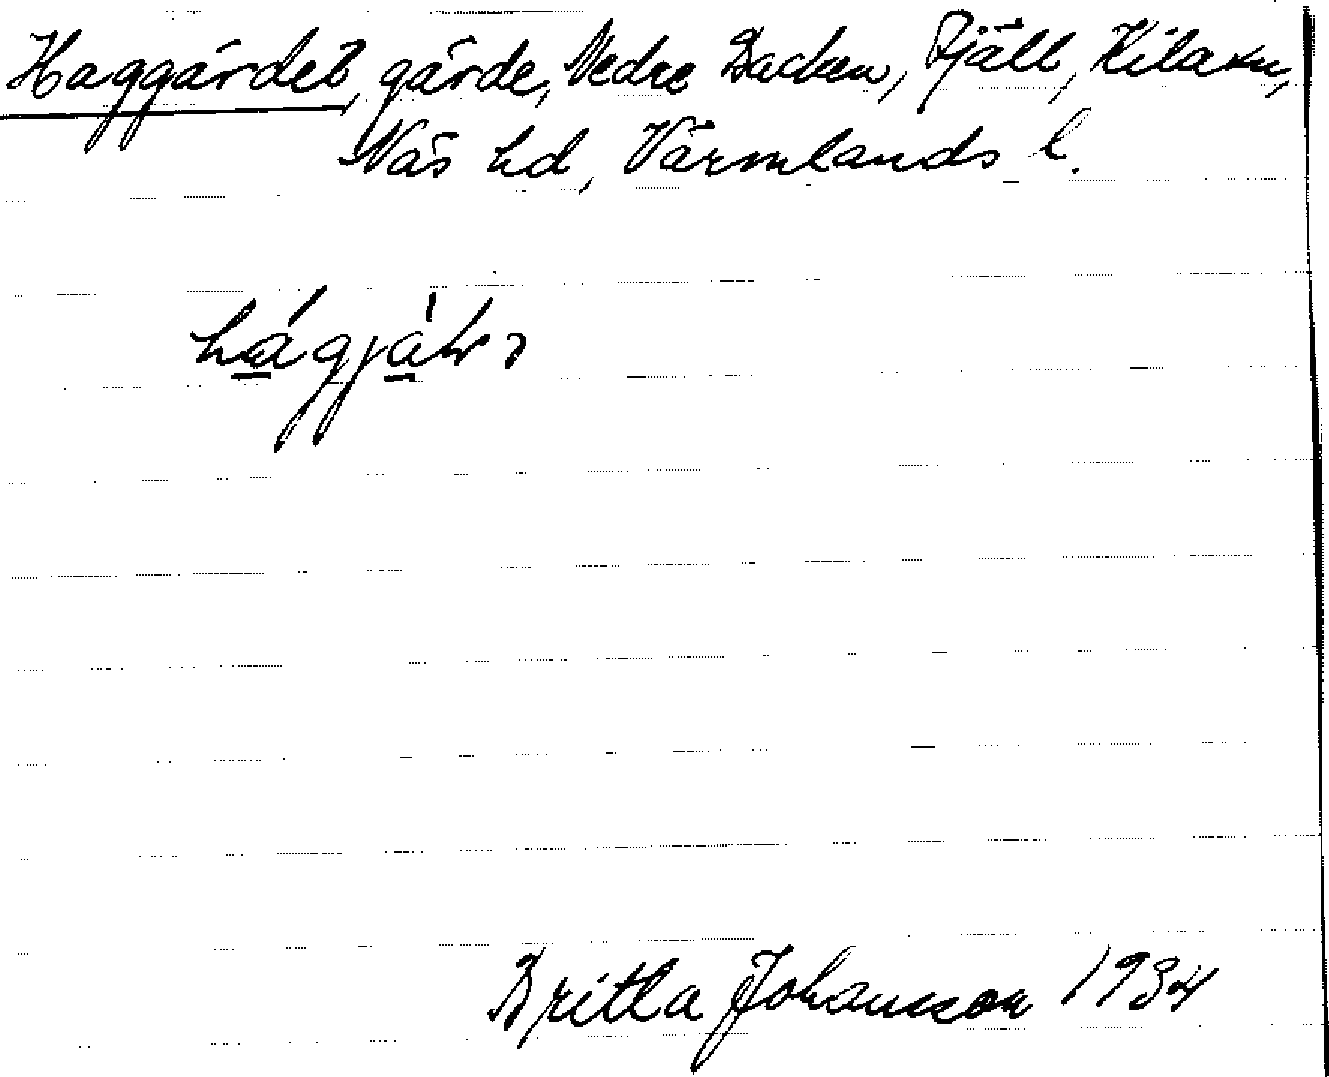 Haggärdet, gärde, Nedre Backen, Fjäll, Kila sn,
Näs hd, Värmlands l.
Britta Johansson 1934